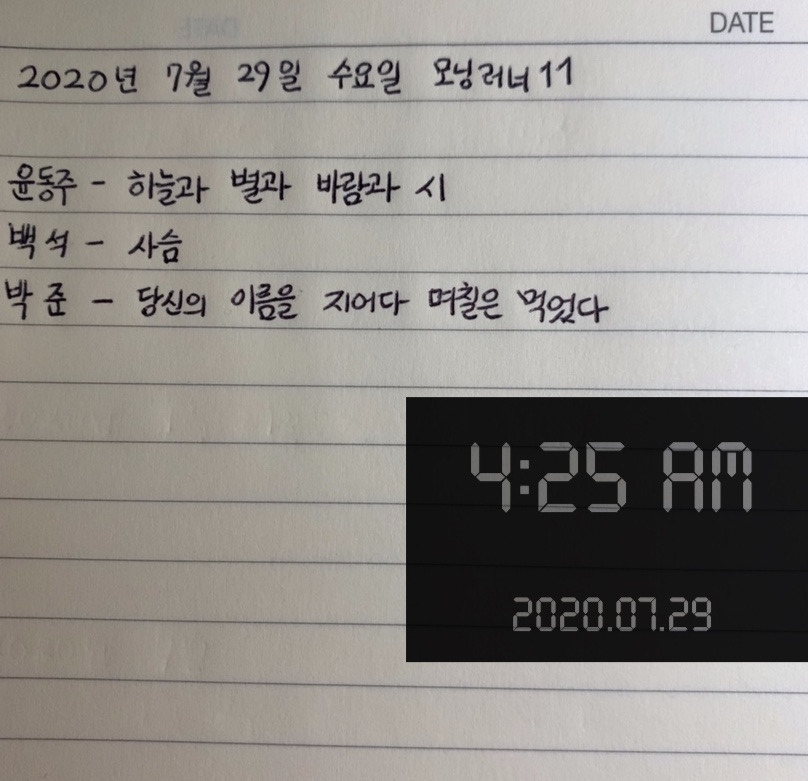 DATE
2020년 7월 29일 수요일 모닝러너 11
윤동주 - 하늘과 별과 바람과 시
백석 - 사슴
박준 - 당신의 이름을 지어다 며칠은 먹었다
4:25 AM
2020.07.29